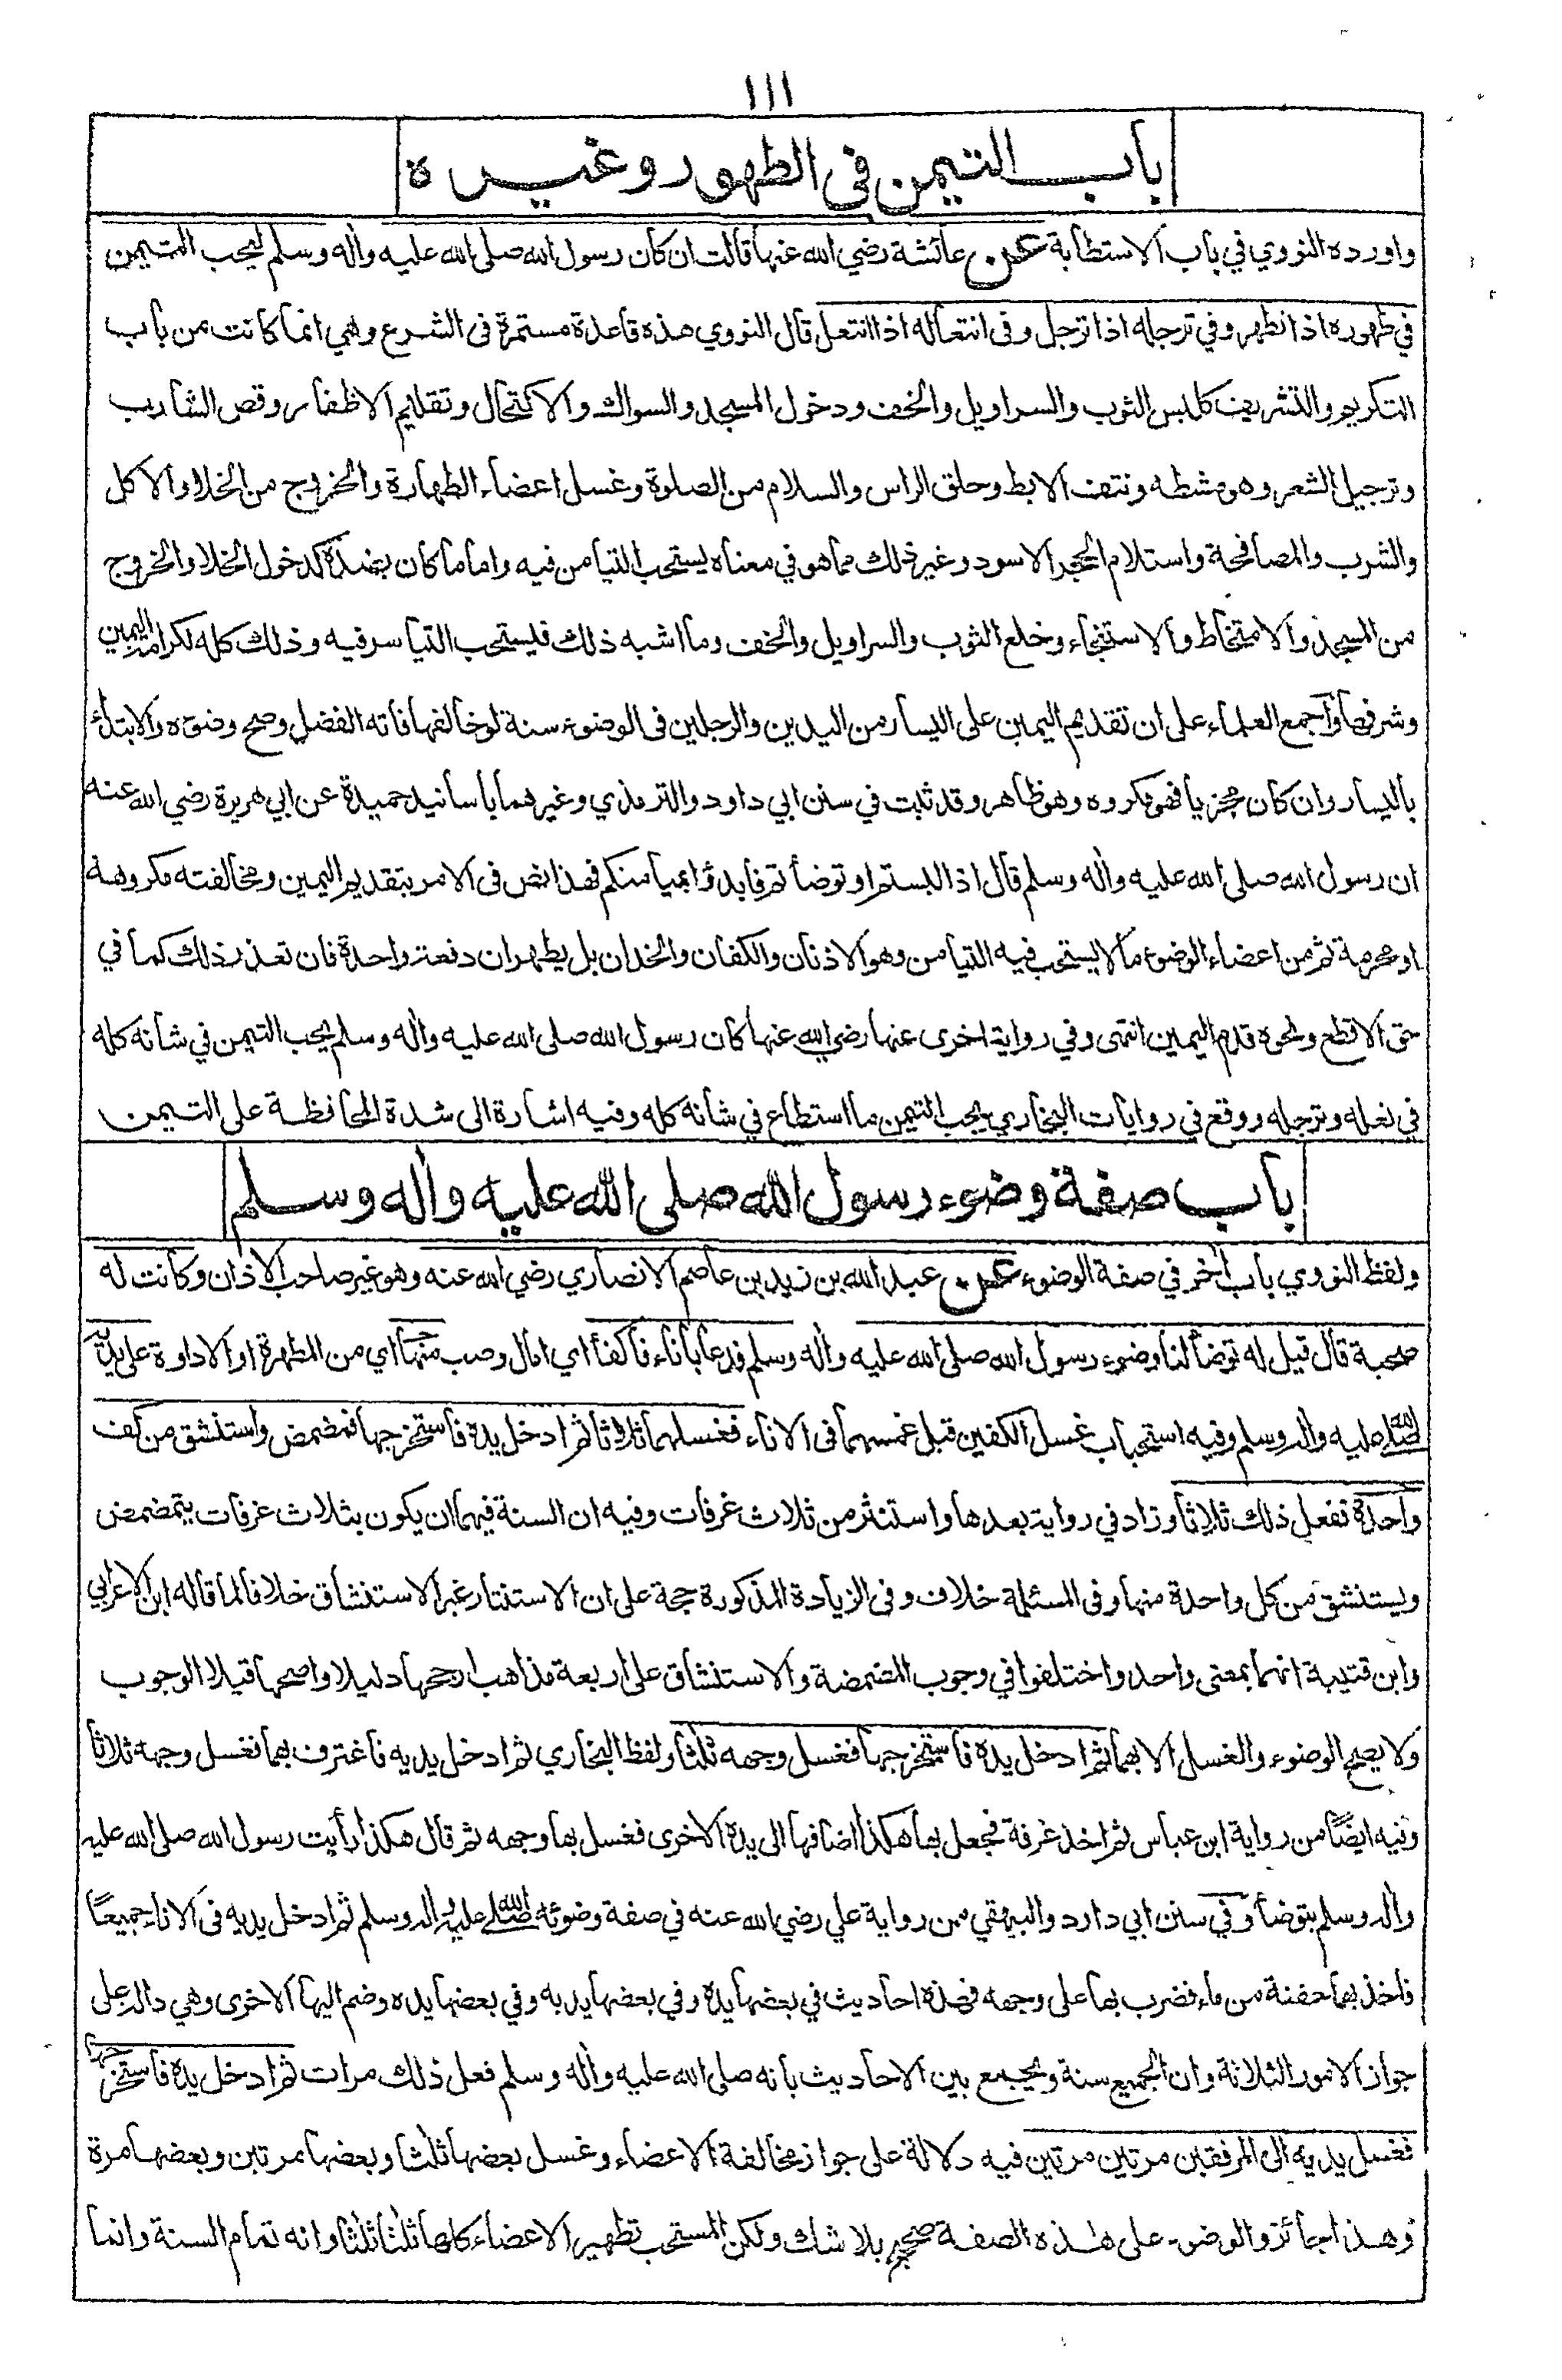 ١١١
باب التيمن فى الطهور وغيره
واورده النووي في باب الاستطابة عن عائشة رضي الله عنها قالت ان كان رسول الله صلى الله عليه واٰله وسلم ليحب التيمن
في طهوره اذا تطهر وفي ترجله اذا ترجل وفى انتعاله اذا انتعل قال النووي هذه قاعدة مستمرة فى الشرع وهي انما كانت من باب
التكريم والتشريف كلبس الثوب والسراويل والخف ودخول المسجد والسواك والاكتحال وتقليم الاظفار وقص الشارب
وترجيل الشعر وهو مشطه ونتف الابط وحلق الراس والسلام من الصلوة وغسل اعضاء الطهارة والخروج من الخلاء والاكل
والشرب والمصافحة واستلام الحجر الاسود وغير ذلك مما هو في معناه يستحب التيامن فيه واما ما كان بضدة كدخول الخلاء والخروج
من المسجد والامتخاط والاستنجاء وخلع الثوب والسراويل والخف وما اشبه ذلك فليستحب التياسر فيه وذلك كله لكرامة اليمين
وشرفها واجمع العلماء على ان تقديم اليمين على اليسار من اليدين والرجلين فى الوضوء سنة لو خالفها فاته الفضل وصح وضوءه والابتداء
باليسار وان كان مجزيا فهو مكروه وهو ظاهر وقد ثبت في سنن ابي داود والترمذي وغيرهما باسانيد حميدة عن ابي هريرة رضي الله عنه
ان رسول الله صلى الله عليه واٰله وسلم قال اذا لبستم او توضأتم فابدؤا بميامنكم فهذا نص فى الامر بتقديم اليمين ومخالفته مكروهة
او محرمة ثم من اعضاء الوضوء ما لا يستحب فيه التيامن وهو الاذنان والكفان والخدان بل يطهران دفعة واحدة فان تعذر ذلك كما في
حق الاقطع ونحوه قدم اليمين انتهى وفي رواية اخرى عنها رضي الله عنها كان رسول الله صلى الله عليه واٰله وسلم يحب التيمن في شانه كله
في نعله وترجله ووقع في روايات البخاري يحب التيمن ما استطاع في شانه كله وفيه اشارة الى شدة المحافظة على التيمن
باب صفة وضوء رسول الله صلى الله عليه واٰله وسلم
ولفظ النووي باب اٰخر في صفة الوضوء عن عبد الله بن زيد بن عاصم الانصاري رضي الله عنه وهو غير صاحب الاذان وكانت له
صحبة قال قيل له توضأ لنا وضوء رسول الله صلى الله عليه واٰله وسلم فدعا باناء فاكفأ اي امال وصب منها اي من المطهرة او الاداوة على يديه
صلى الله عليه واٰله وسلم وفيه استحباب غسل الكفين قبل غمسهما فى الاناء فغسلهما ثلاثا ثم ادخل يدة فاستخرجها فمضمض واستنشق من كف
واحدة ففعل ذلك ثلاثا وزاد في رواية بعدها واستنثر من ثلاث غرفات وفيه ان السنة فيهما ان يكون بثلاث غرفات يتمضمض
ويستنشق من كل واحدة منها وفى المسئلة خلاف وفى الزيادة المذكورة حجة على ان الاستنثار غير الاستنشاق خلافا لما قاله ابن الاعرابي
وابن قتيبة انهما بمعنى واحد واختلفوا في وجوب المضمضة والاستنشاق على اربعة مذاهب ارجحها دليلا واصحها قيلا الوجوب
ولا يصح الوضوء والغسل الا بهما ثم ادخل يدة فاستخرجها فغسل وجهه ثلثا ولفظ البخاري ثم ادخل يديه فاغترف بهما فغسل وجهه ثلاثا
وفيه ايضًا من رواية ابن عباس ثم اخذ غرفة فجعل بها هكذا اضافها الى يدة الاخرى فغسل بها وجهه ثم قال هكذا رأيت رسول الله صلى الله عليه
واٰله وسلم يتوضأ وفي سنن ابي دارد والبيهقي من رواية علي رضي الله عنه في صفة وضوئه صلى الله عليه واٰله وسلم ثم ادخل يديه فى الاناء جميعًا
فاخذ بهما حفنة من ماء فضرب بها على وجهه فهذة احاديث في بعضها يدة وفي بعضها يديه وفي بعضها يده وضم اليها الاخرى وهي دالة على
جواز الامور الثلاثة وان الجميع سنة ويجمع بين الاحاديث بانه صلى الله عليه واٰله وسلم فعل ذلك مرات ثم ادخل يدة فاستخرجها
فغسل يديه الى المرفقين مرتين مرتين فيه دلالة على جواز مخالفة الاعضاء وغسل بعضها ثلثا وبعضها مرتين وبعضها مرة
وهذا جائز والوضوء على هٰذه الصفة صحيح بلا شك ولكن المستحب تطهير الاعضاء كلها ثلثا ثلثا وانه تمام السنة وانما